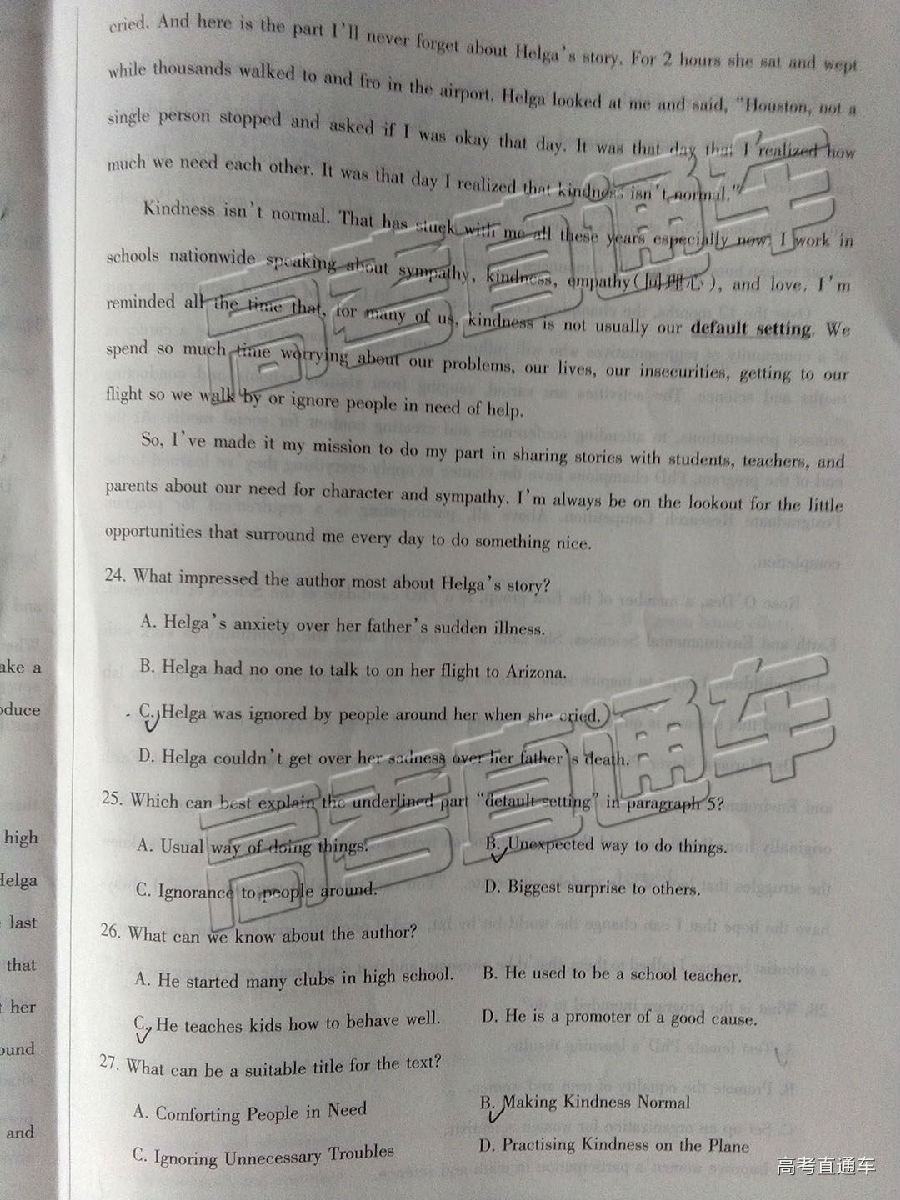 cried. And here is the part I'll never forget about Helga's story. For 2 hours she sat and wept
while thousands walked to and fro in the airport. Helga looked at me and said, "Houston, not a
single person stopped and asked if I was okay that day. It was that day that I realized how
much we need each other. It was that day I realized that kindness isn't normal."
Kindness isn't normal. That has stuck with me all these years especially now. I work in
schools nationwide speaking about sympathy, kindness, empathy(同理心), and love. I'm
reminded all the time that, for many of us, kindness is not usually our default setting. We
spend so much time worrying about our problems, our lives, our insecurities, getting to our
flight so we walk by or ignore people in need of help.
So, I've made it my mission to do my part in sharing stories with students, teachers, and
parents about our need for character and sympathy. I'm always be on the lookout for the little
opportunities that surround me every day to do something nice.
24. What impressed the author most about Helga's story?
A. Helga's anxiety over her father's sudden illness.
B. Helga had no one to talk to on her flight to Arizona.
C. Helga was ignored by people around her when she cried.
D. Helga couldn't get over her sadness over her father's death.
25. Which can best explain the underlined part "default setting" in paragraph 5?
A. Usual way of doing things. B. Unexpected way to do things.
C. Ignorance to people around. D. Biggest surprise to others.
26. What can we know about the author?
A. He started many clubs in high school. B. He used to be a school teacher.
C. He teaches kids how to behave well. D. He is a promoter of a good cause.
27. What can be a suitable title for the text?
A. Comforting People in Need B. Making Kindness Normal
C. Ignoring Unnecessary Troubles D. Practising Kindness on the Plane
ake a
oduce
high
Helga
last
that
her
ound
and
高考直通车
高考直通车
高考直通车